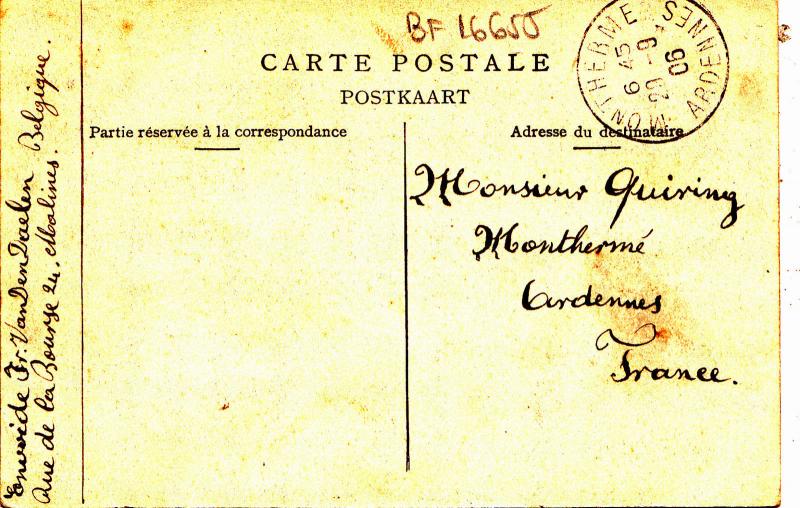 BF 16650
CARTE POSTALE
POSTKAART
Partie réservée à la correspondance
Adresse du destinataire
MONTHERMÉ ARDENNES
6 45
29 -9
06
Monsieur Quiring
Monthermé
Ardennes
France.
Envoi de Fr. VanDenDaelen Belgique.
Rue de la Bourse 24. Malines.